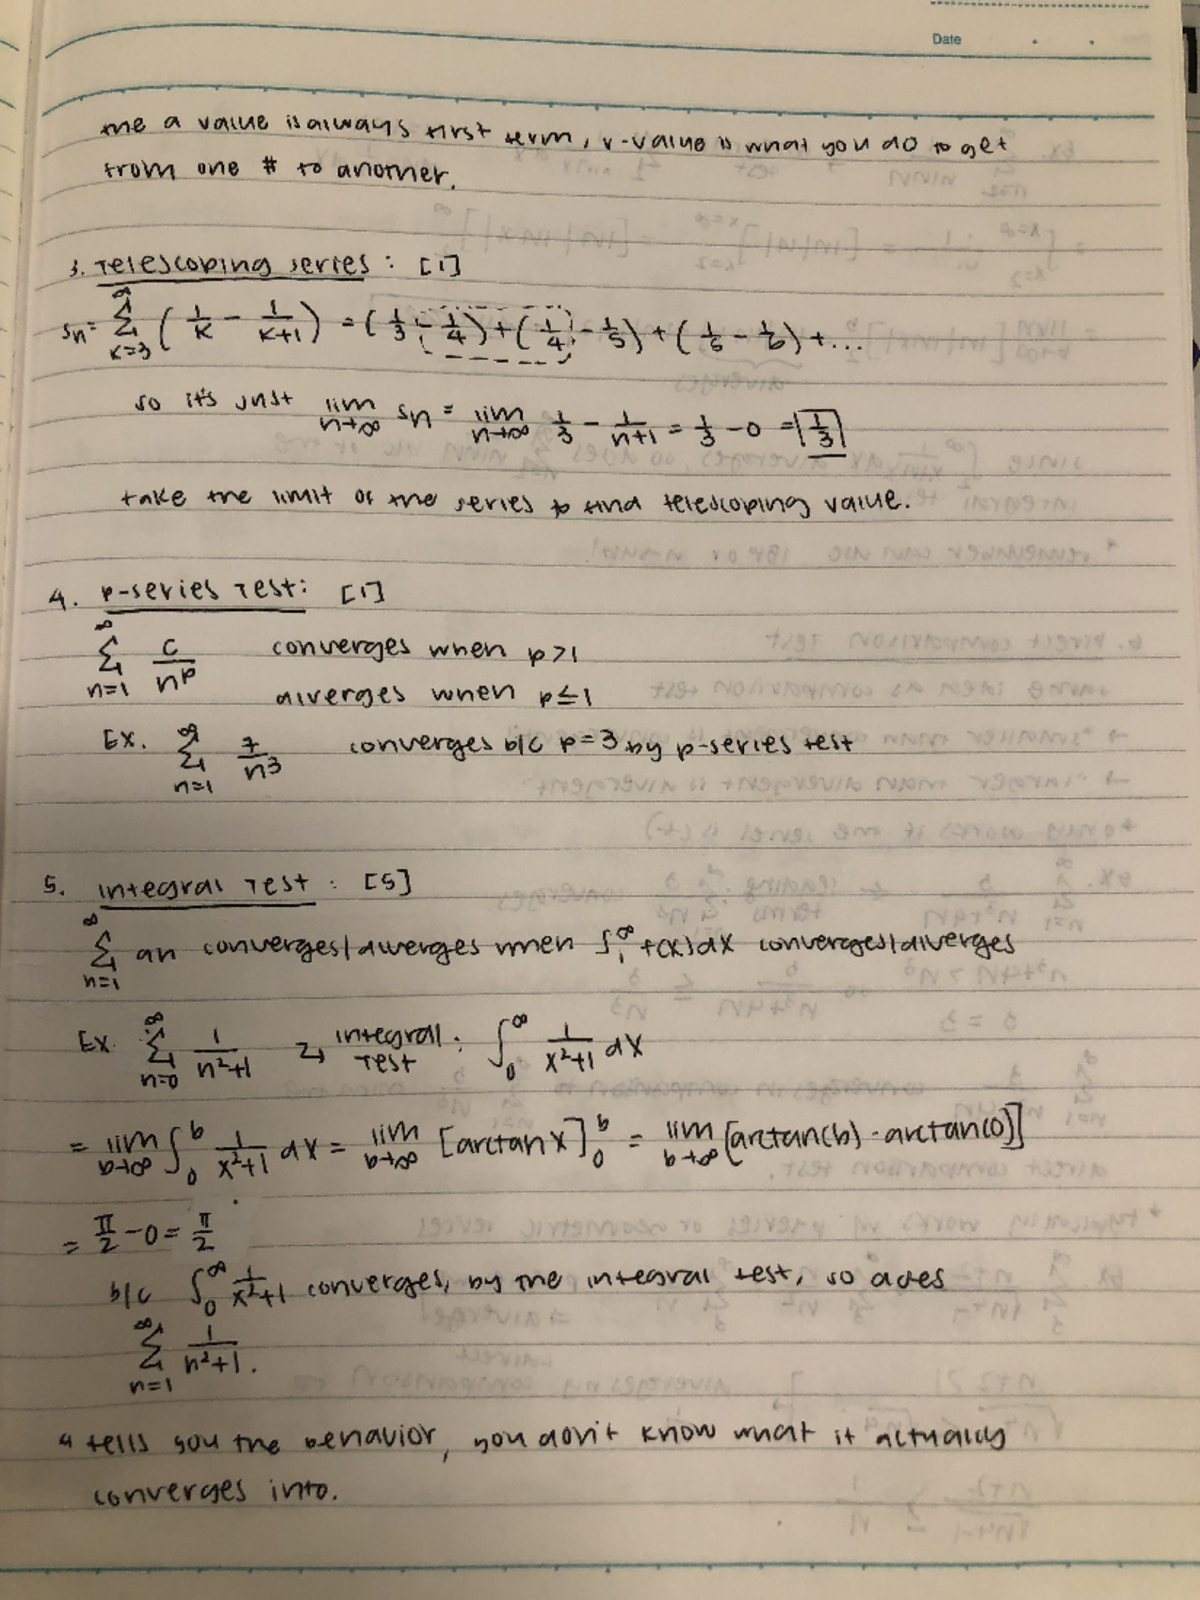 Date
the a value is always first term, r-value is what you do to get
from one # to another.
3. Telescoping series: [1]
Sn = ∞ Σ k=3 (1/k - 1/k+1) = (1/3 - 1/4) + (1/4 - 1/5) + (1/5 - 1/6) + ...
so it's just lim n→∞ Sn = lim n→∞ 1/3 - 1/n+1 = 1/3 - 0 = 1/3
take the limit of the series to find telescoping value.
4. p-series Test: [1]
∞ Σ n=1 c/n^p converges when p>1
diverges when p≤1
Ex. ∞ Σ n=1 7/n^3 converges b/c p=3 by p-series test
5. Integral Test: [5]
∞ Σ n=1 an converges/diverges when ∫1^∞ f(x)dx converges/diverges
Ex. ∞ Σ n=0 1/n^2+1 integral test: ∫0^∞ 1/x^2+1 dx
= lim b→∞ ∫0^b 1/x^2+1 dx = lim b→∞ [arctan x]0^b = lim b→∞ [arctan(b) - arctan(0)]
= π/2 - 0 = π/2
b/c ∫0^∞ 1/x^2+1 converges, by the integral test, so does
∞ Σ n=1 1/n^2+1.
tells you the behavior, you don't know what it actually
converges into.